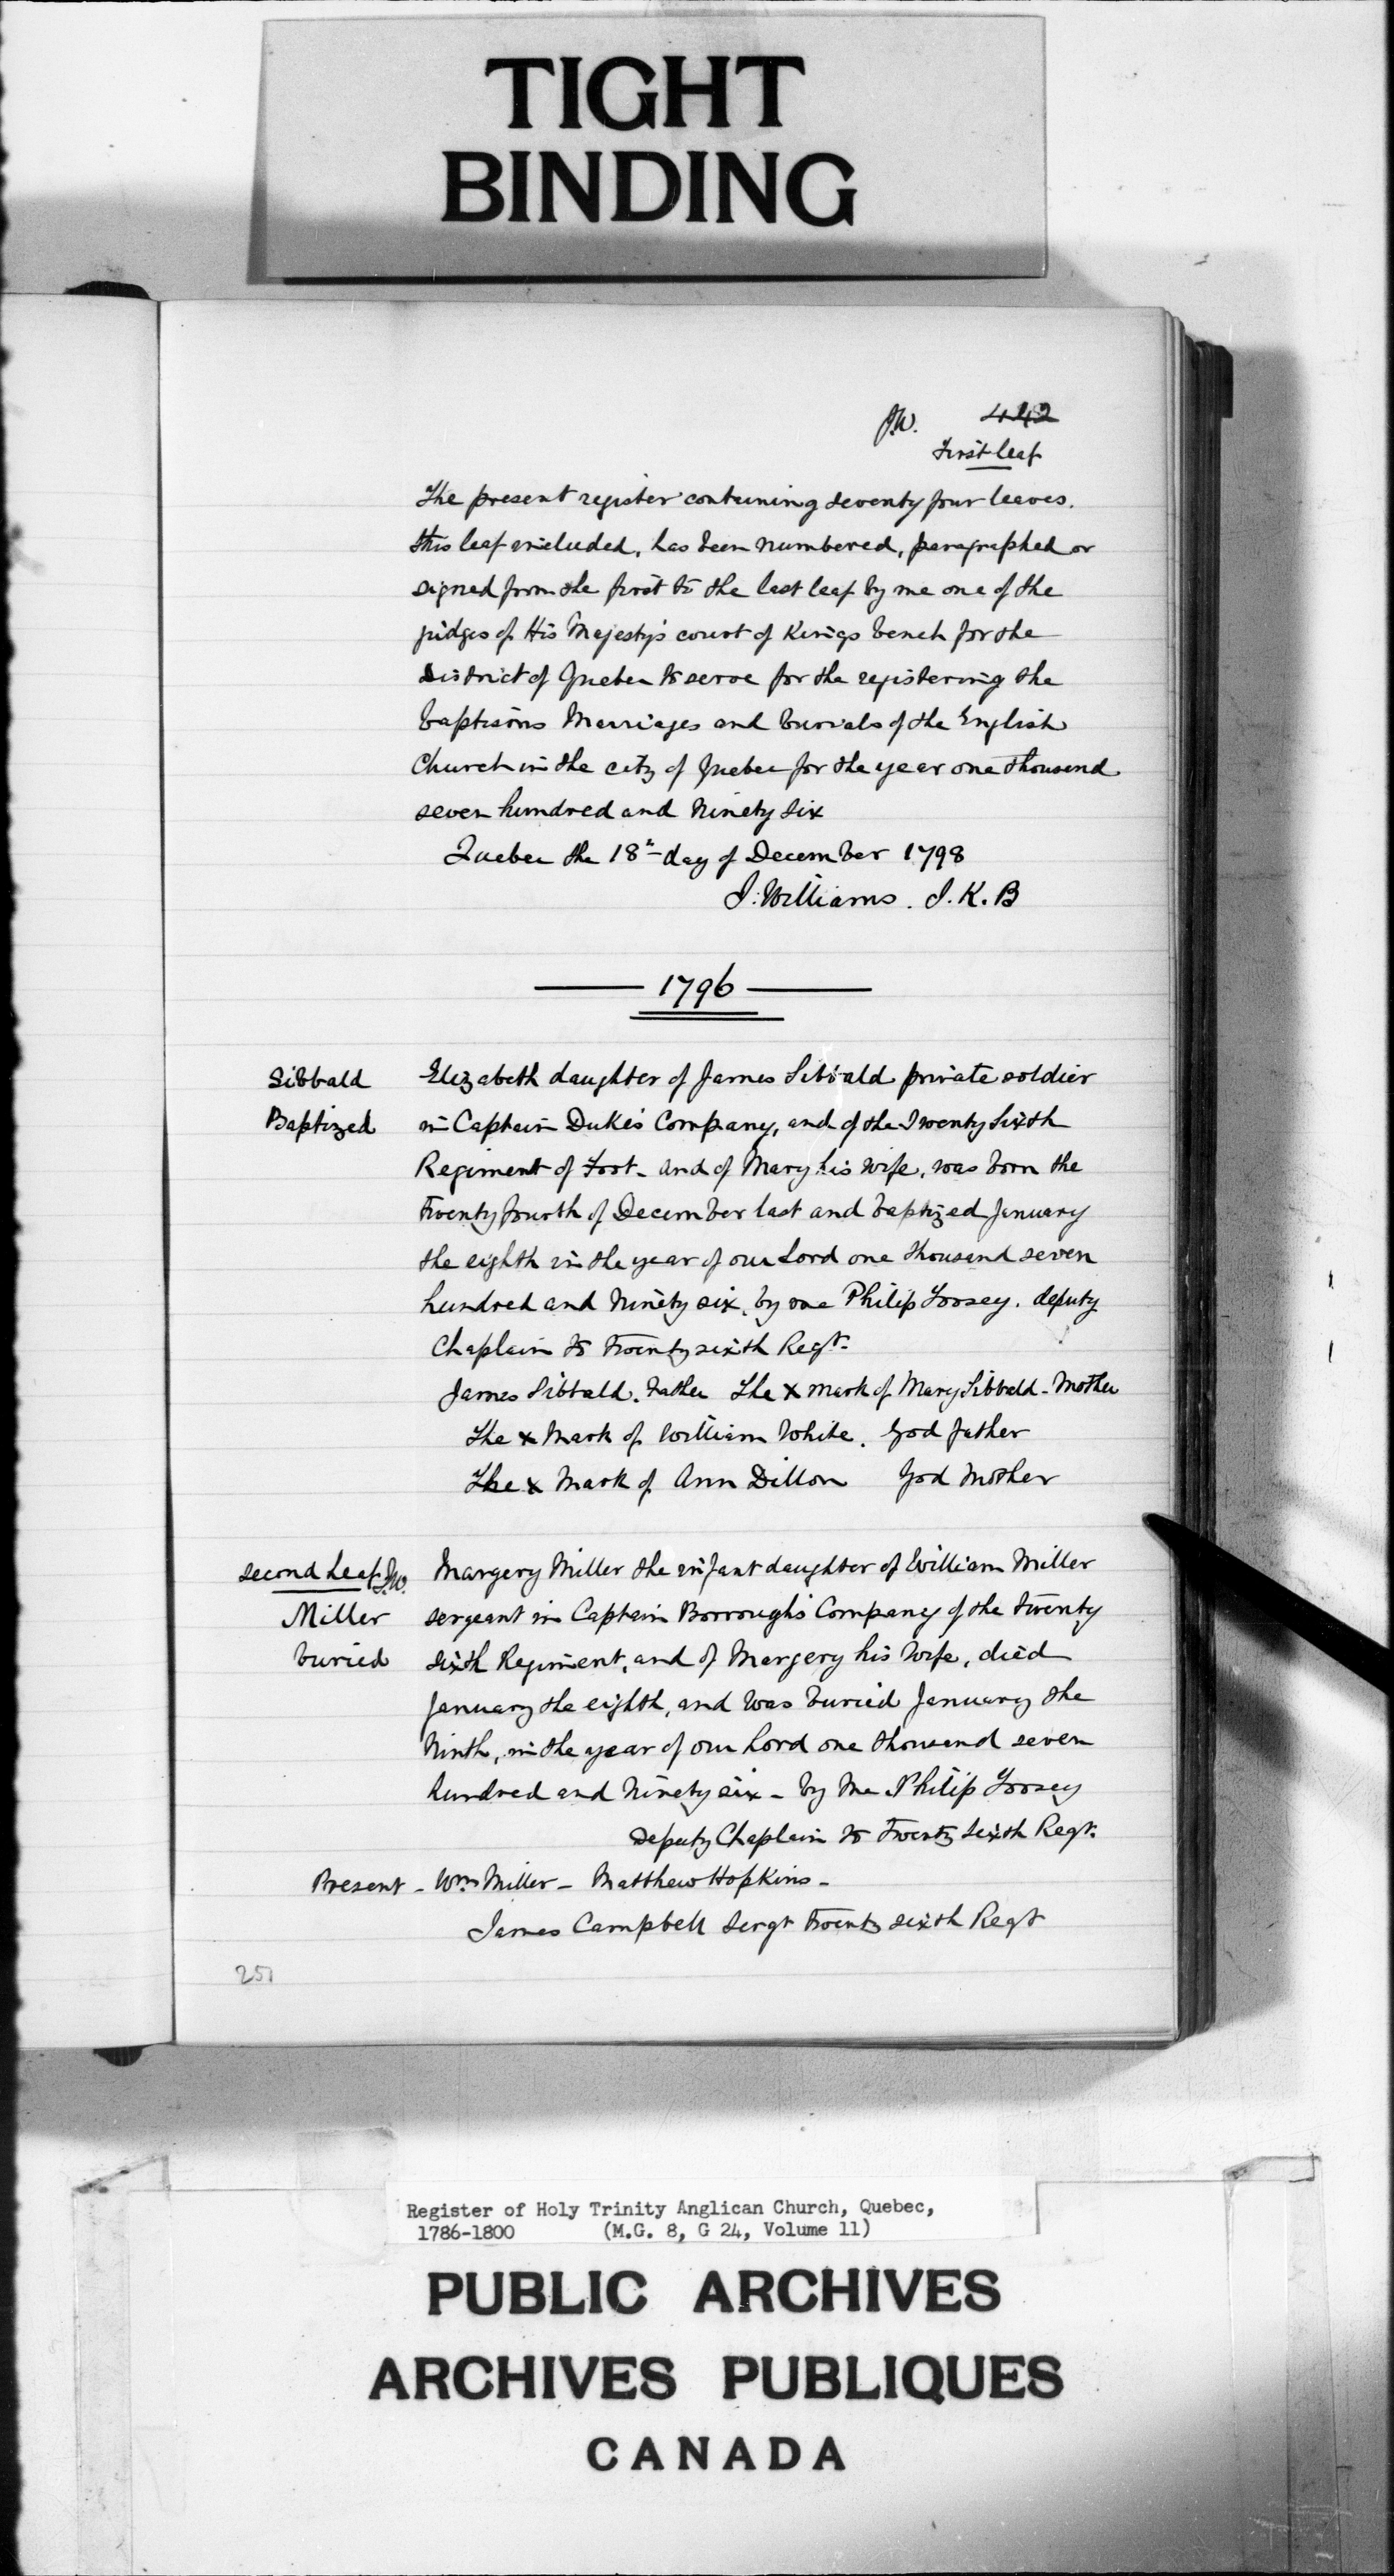 TIGHT
BINDING
J.W. 442
First leaf
The present register containing seventy four leaves.
this leaf included, has been numbered, paragraphed or
signed from the first to the last leaf by me one of the
judges of His Majesty's court of Kings bench for the
District of Quebec to serve for the registering the
baptisms Marriages and burials of the English
Church in the city of Quebec for the year one thousand
seven hundred and Ninety six
Quebec the 18th day of December 1798
J. Williams. J. K. B
1796
Sibbald
Baptized
Elizabeth daughter of James Sibbald private soldier
in Captain Duke's Company, and of the Twenty Sixth
Regiment of Foot - and of Mary his wife, was born the
Twenty fourth of December last and baptized January
the eighth in the year of our Lord one thousand seven
hundred and Ninety six, by me Philip Toosey. deputy
Chaplain to twenty sixth Regt.
James Sibbald. Father The x mark of Mary Sibbald - Mother
The x Mark of William White. God father
The x Mark of Ann Dillon God Mother
Second Leaf J.W.
Miller
buried
Margery Miller the infant daughter of William Miller
sergeant in Captain Borrough's Company of the twenty
sixth Regiment, and of Margery his wife, died
January the eighth, and was buried January the
Ninth, in the year of our Lord one thousand seven
hundred and Ninety six - by me Philip Toosey
Deputy Chaplain to Twenty Sixth Regt.
Present - Wm Miller - Matthew Hopkins -
James Campbell Sergt twenty sixth Regt
251
Register of Holy Trinity Anglican Church, Quebec,
1786-1800 (M.G. 8, G 24, Volume 11)
PUBLIC ARCHIVES
ARCHIVES PUBLIQUES
CANADA